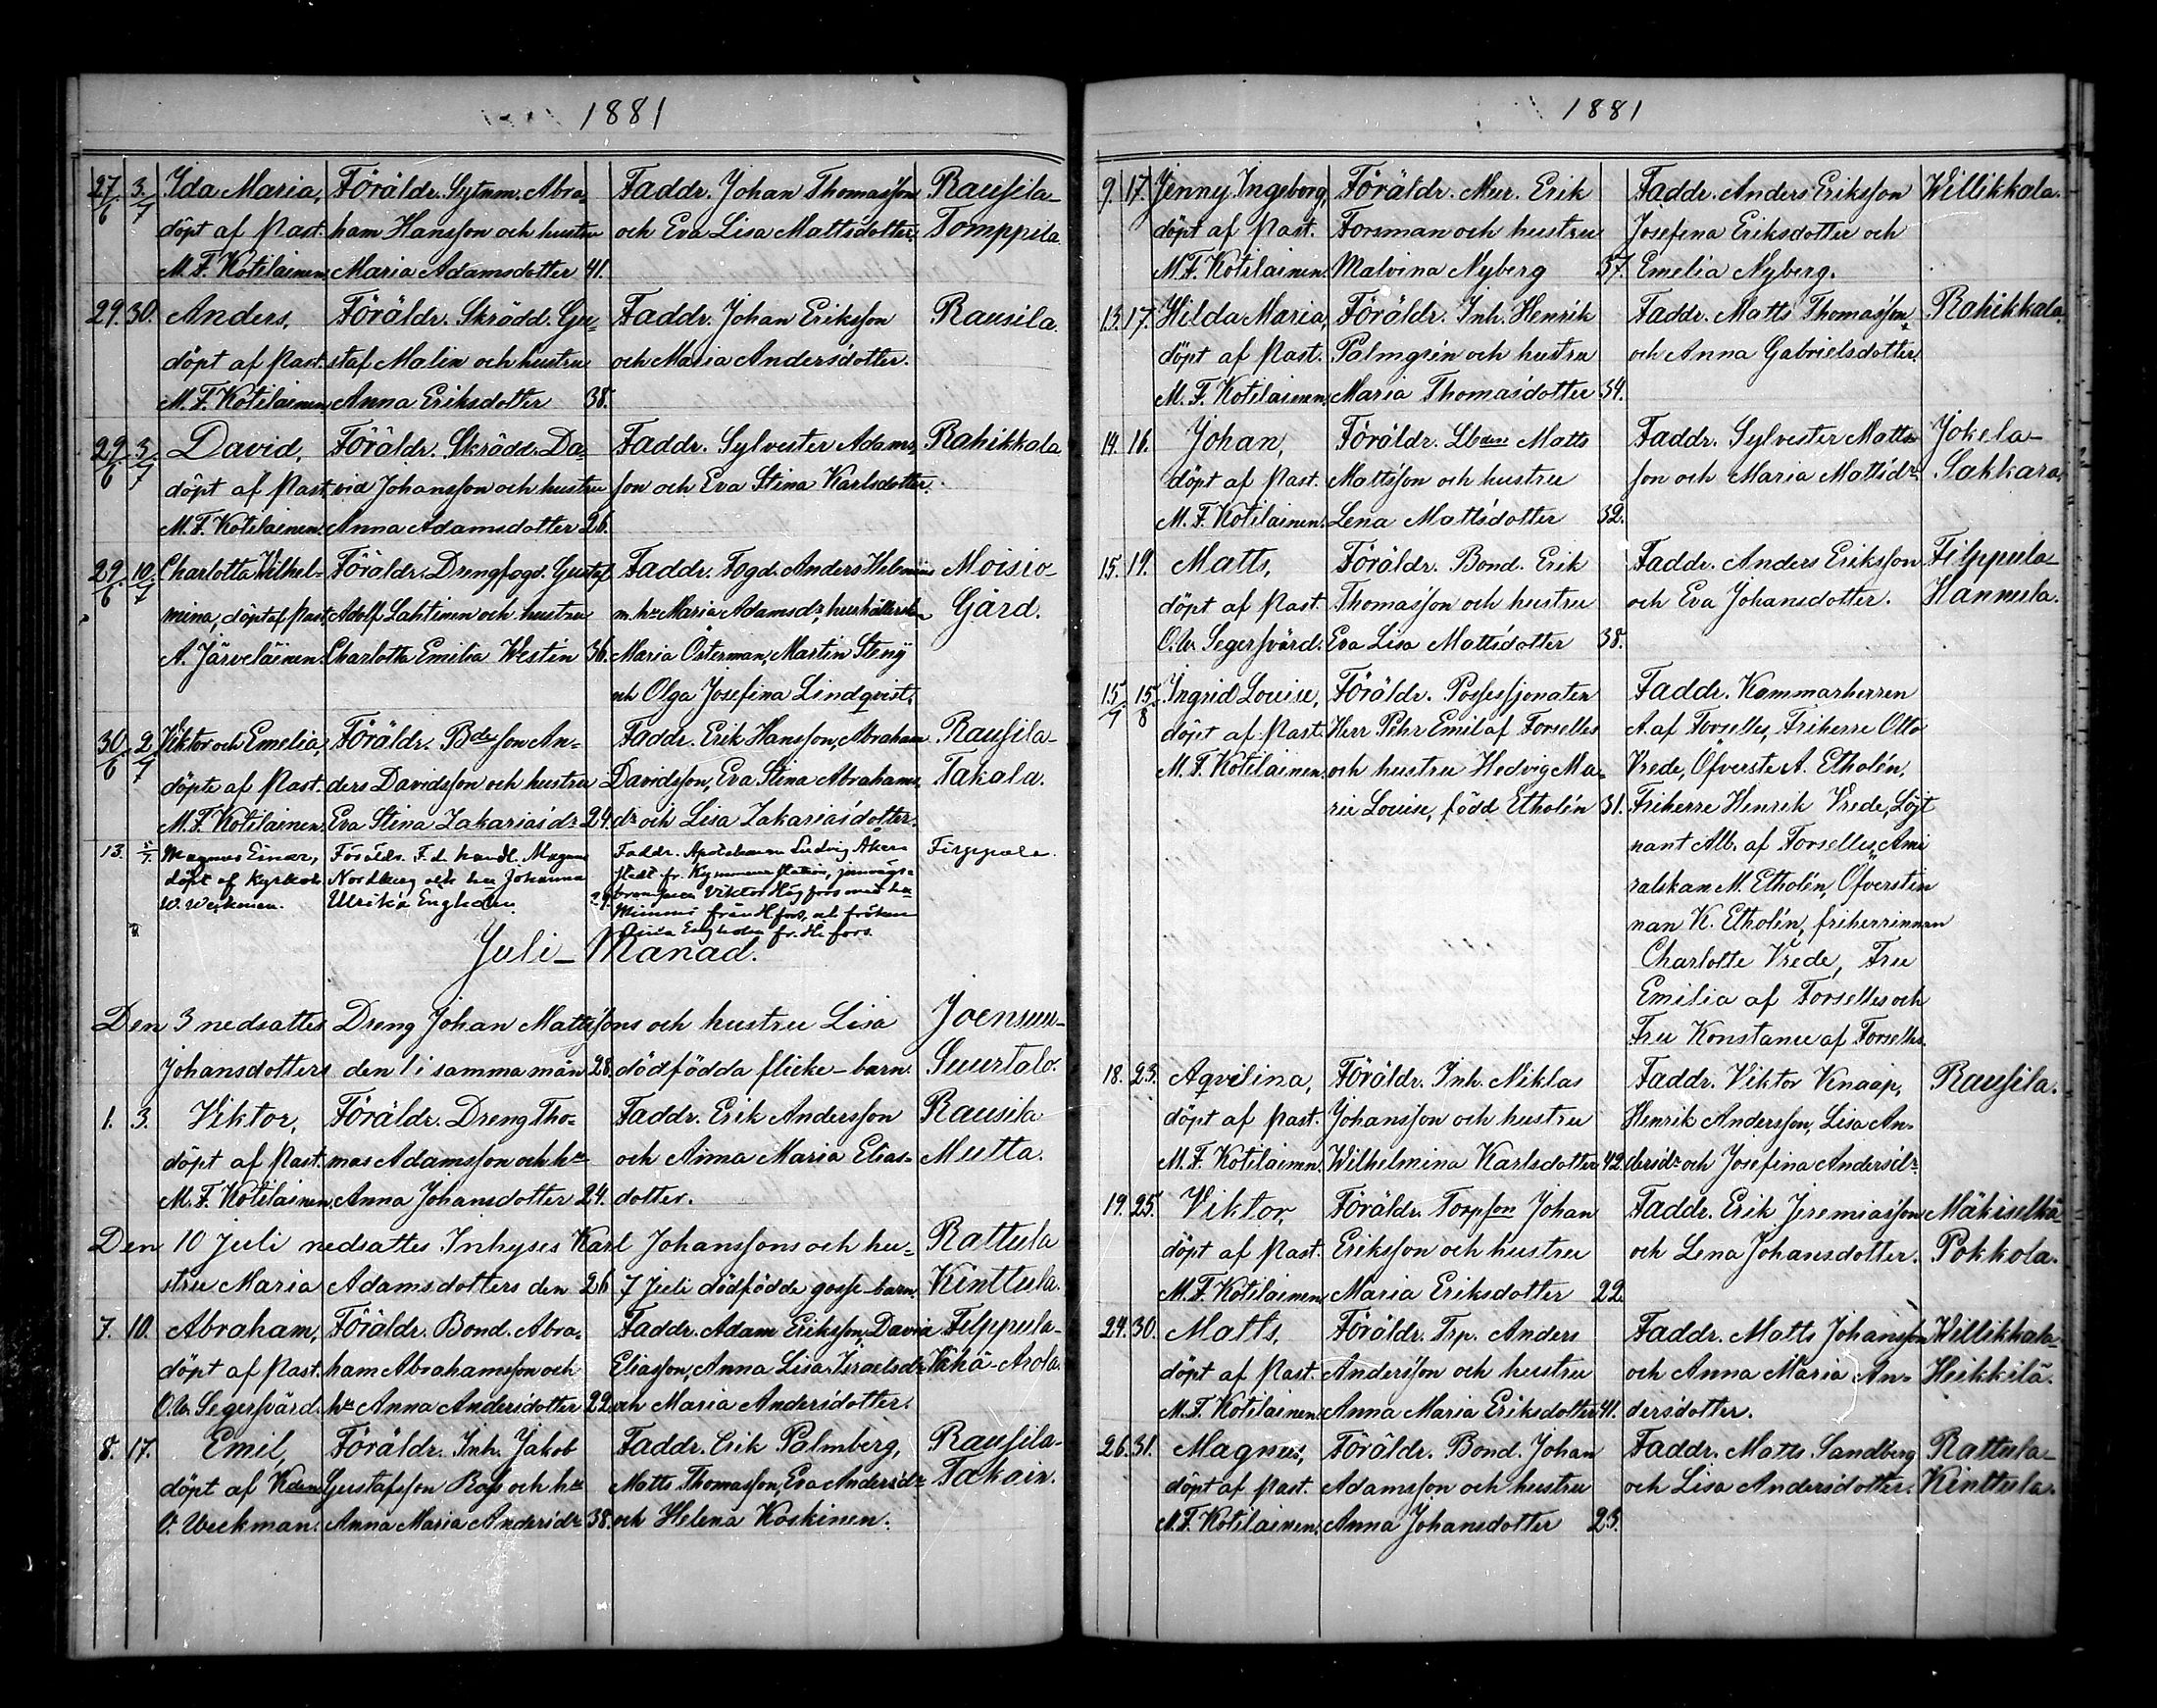 1881
27/6 3/7 Ida Maria, Föräldr. Sytnm. Abra- Faddr. Johan Thomasson Rausila-
döpt af Past. ham Hansson och hustru och Eva Lisa Mattsdotter. Tomppila.
M. F. Kotilainen. Maria Adamsdotter 41.
29. 30. Anders, Föräldr. Skrädd. Gu- Faddr. Johan Eriksson Rausila.
döpt af Past. staf Malin och hustru och Maria Andersdotter.
M. F. Kotilainen. Anna Eriksdotter 38.
29/6 3/7 David, Föräldr. Skrädd. Da- Faddr. Sylvester Adams- Rahikkala
döpt af Past. vid Johansson och hustru son och Eva Stina Karlsdotter.
M. F. Kotilainen. Anna Adamsdotter 26.
29/6 10/7 Charlotta Wilhel- Föräldr. Drengfogd. Gustaf Faddr. Fogd. Anders Helenius Moisio-
mina, döpt af Past. Adolf Lahtinen och hustru m. hu Maria Adamsdr, hushållerskan Gård.
A. Järveläinen. Charlotta Emilia Westin 36. Maria Österman, Martin Stenij
och Olga Josefina Lindqvist.
30/6 2/7 Viktor och Emelia, Föräldr. Bdeson An- Faddr. Erik Hansson, Abraham Rausila-
döpte af Past. ders Davidsson och hustru Davidsson, Eva Stina Abrahams- Takala.
M. F. Kotilainen. Eva Stina Zakariasdr 24. dr och Lisa Zakariasdotter.
13. Magnus Einar, Föräldr. F. d. handl. Magnus Faddr. Apothekaren Ludvig Åker-
döpt af Kyrkoh. Nordberg och hu Johanna stedt fr. Kymmene station, jernvägs-
W. Weckman. Ulrika Engholm. 29. Viktor Högfors med hu
Mimmi från Hfors, och fröken
Engholm fr. H:fors.
Juli-Månad.
Den 3 nedsattes Dreng Johan Mattssons och hustru Lisa Joensuu-
Johansdotters den 1 i samma mån 28. dödfödda flicke-barn. Suurtalo.
1. 3. Viktor, Föräldr. Dreng Tho- Faddr. Erik Andersson Rausila
döpt af Past. mas Adamsson och hu och Anna Maria Elias- Mutta.
M. F. Kotilainen. Anna Johansdotter 24. dotter.
Den 10 Juli nedsattes Inhyses Karl Johanssons och hu- Rattula
stru Maria Adamsdotters den 26 7 Juli dödfödde gosse-barn. Kinttula.
7. 10. Abraham, Föräldr. Bond. Abra- Faddr. Adam Eriksson, David Filppula-
döpt af Past. ham Abrahamsson och Eliasson, Anna Lisa Israelsdr Vähä-Arola.
O. W. Segersvärd. hu Anna Andersdotter 22. och Maria Andersdotter.
8. 17. Emil, Föräldr. Inh. Jakob Faddr. Erik Palmberg, Rausila-
döpt af Kden Gustafsson Raf och hu Matts Thomasson, Eva Andersdr Takoin.
V. Weckman. Anna Maria Andersdr 38. och Helena Koskinen.
1881
9. 17. Jenny Ingeborg, Föräldr. Mur. Erik Faddr. Anders Eriksson Willikkala.
döpt af Past. Forsman och hustru Josefina Eriksdotter och
M. F. Kotilainen. Malvina Nyberg 37. Emelia Nyberg.
13. 17. Hilda Maria, Föräldr. Inh. Henrik Faddr. Matts Thomasson Rahikkala.
döpt af Past. Palmgrén och hustru och Anna Gabrielsdotter.
M. F. Kotilainen. Maria Thomasdotter 34.
14. 16. Johan, Föräldr. Lbden Matts Faddr. Sylvester Matts- Jokela-
döpt af Past. Mattsson och hustru son och Maria Mattsdr. Sakkara.
M. F. Kotilainen. Lena Mattsdotter 32.
15. 19. Matts, Föräldr. Bond. Erik Faddr. Anders Eriksson Filppula-
döpt af Past. Thomasson och hustru och Eva Johansdotter. Hannula.
O. W. Segersvärd. Eva Lisa Mattsdotter 38.
15/7 15/8 Ingrid Louise, Föräldr. Possessjonaten Faddr. Kammarherren
döpt af Past. Herr Pehr Emil af Forselles A. af Forselles, Friherre Otto
M. F. Kotilainen. och hustru Hedvig Ma- Vrede, Öfverste A. Etholén,
rie Louise, född Etholén 31. Friherre Henrik Vrede, Löjt
nant Alb. af Forselles, Ami
ralskan M. Etholén, Öfverstin
nan K. Etholén, friherrinnan
Charlotte Vrede, Fru
Emilia af Forselles och
Fru Konstance af Forselles.
18. 23. Aqvilina, Föräldr. Inh. Niklas Faddr. Viktor Knaap, Rausila.
döpt af Past. Johansson och hustru Henrik Andersson, Lisa An-
M. F. Kotilainen. Wilhelmina Karlsdotter 42. dersdr och Josefina Andersdr.
19. 25. Viktor, Föräldr. Torpson Johan Faddr. Erik Jeremiasson Mäkiselkä
döpt af Past. Eriksson och hustru och Lena Johansdotter. Pokkola.
M. F. Kotilainen Maria Eriksdotter 22.
24. 30. Matts, Föräldr. Trp. Anders Faddr. Matts Johansson Willikkala-
döpt af Past. Andersson och hustru och Anna Maria An- Heikkilä.
M. F. Kotilainen. Anna Maria Eriksdotter 41. dersdotter.
26. 31. Magnus, Föräldr. Bond. Johan Faddr. Matts Sandberg Rattula-
döpt af Past. Adamsson och hustru och Lisa Andersdotter. Kinttula.
M. F. Kotilainen. Anna Johansdotter 23.